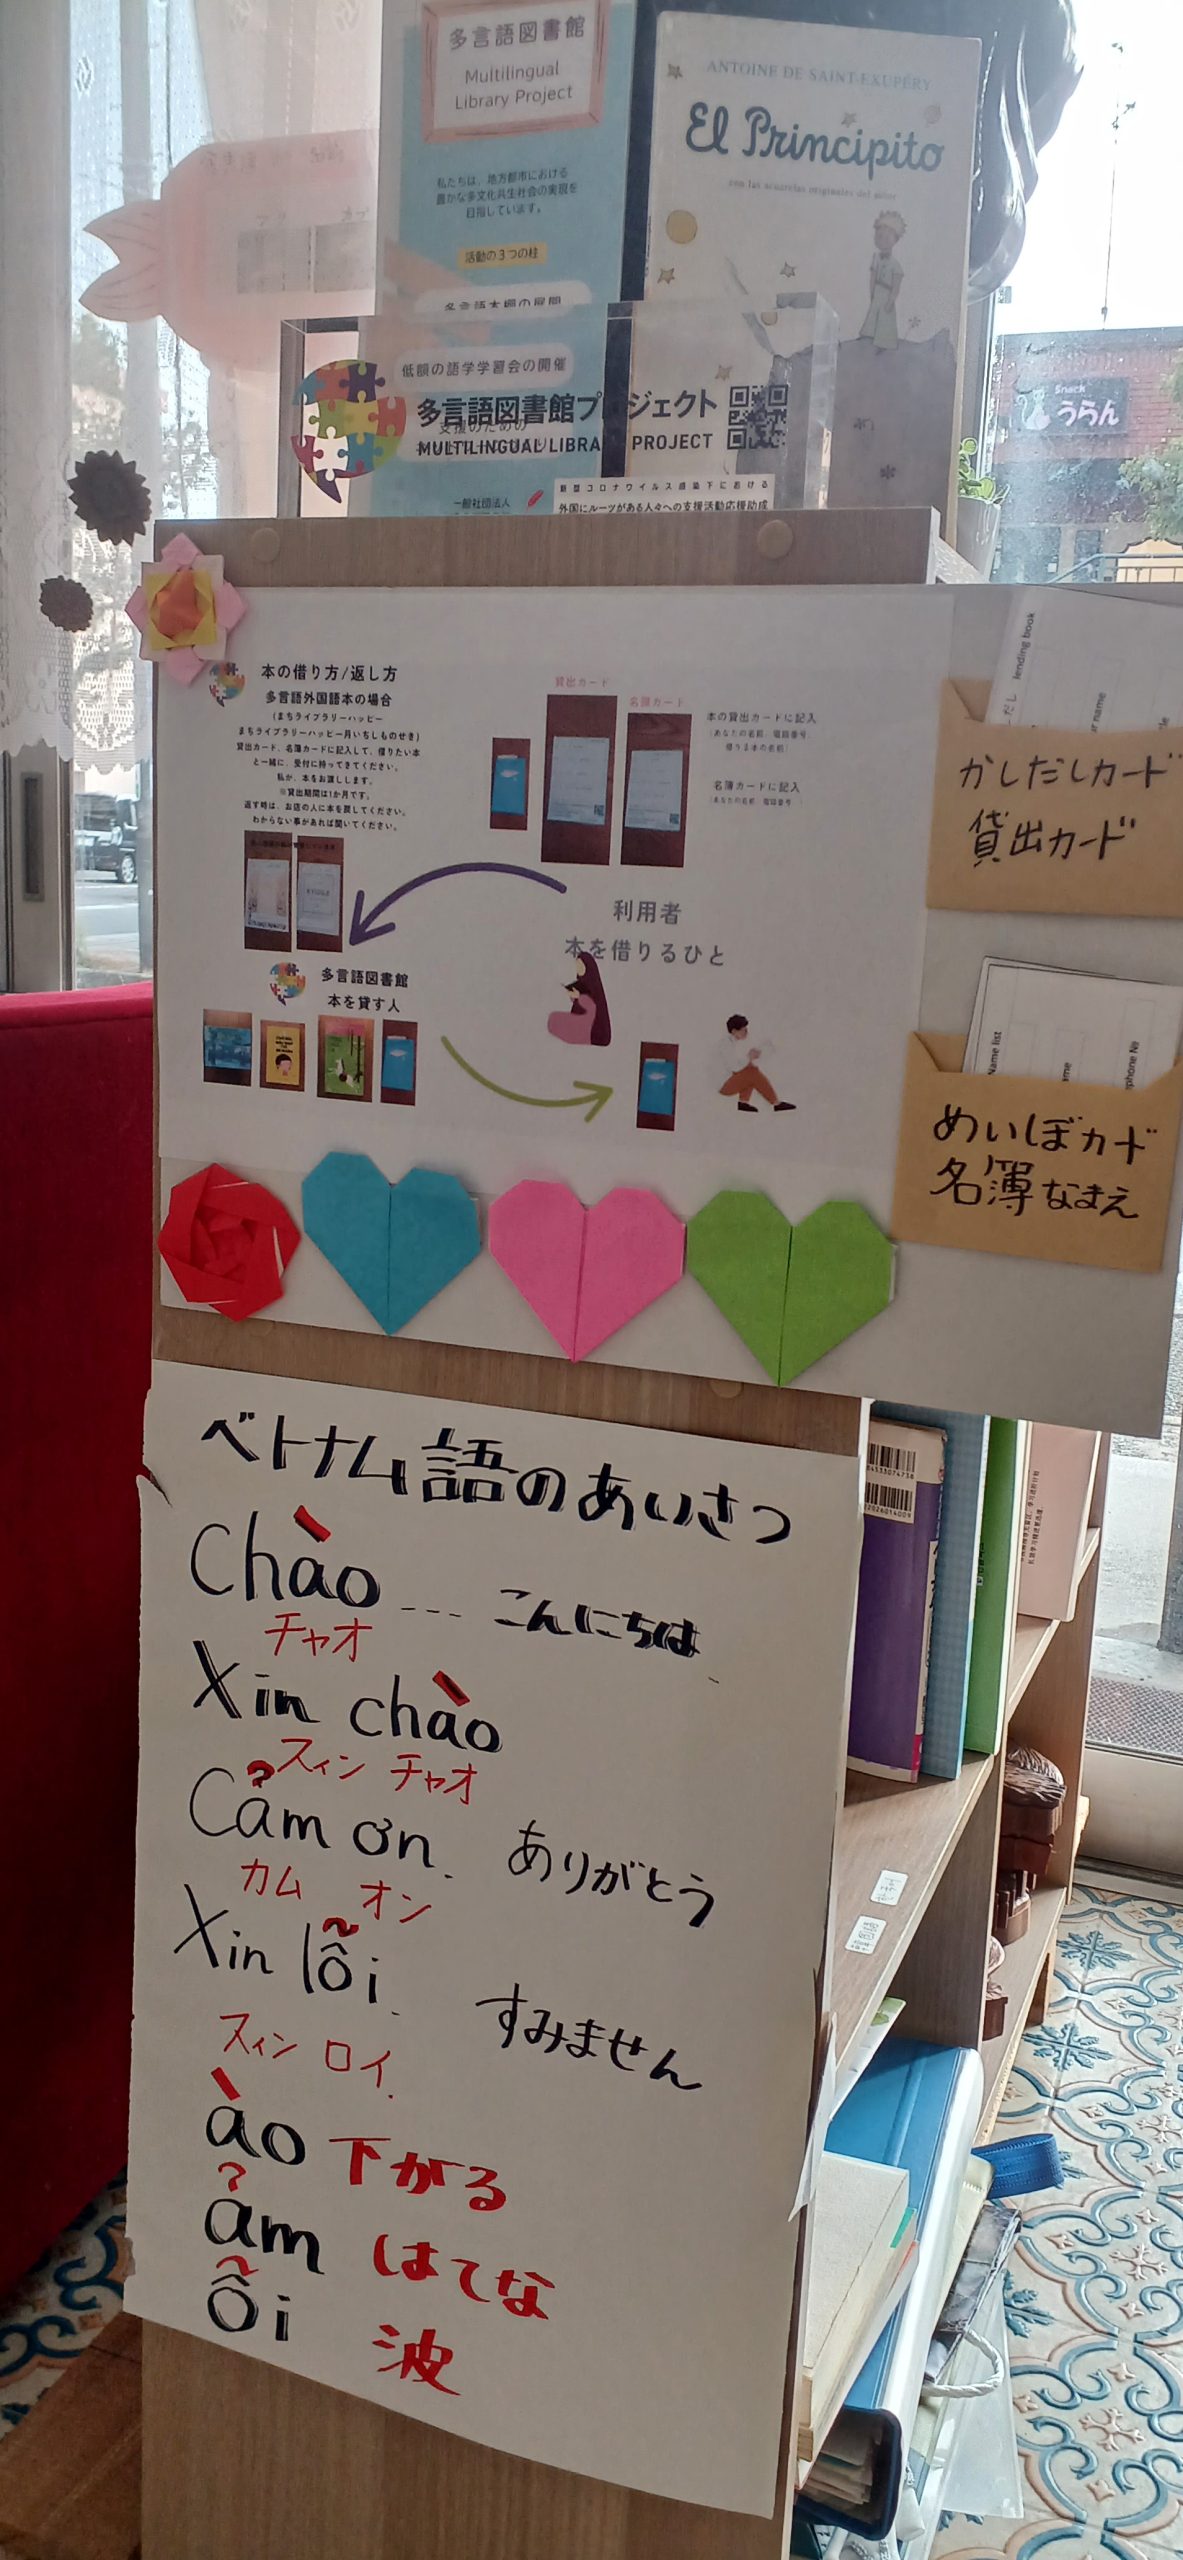 多言語図書館
Multilingual
Library Project
私たちは、地方都市における
豊かな多文化共生社会の実現を
目指しています。
活動の3つの柱
多言語本棚の展開
低額の語学学習会の開催
支援のための
一般社団法人
ANTOINE DE SAINT-EXUPÉRY
El Principito
con las acuarelas originales del autor
多言語図書館プロジェクト
MULTILINGUAL LIBRARY PROJECT
新型コロナウイルス感染下における
外国にルーツがある人々への支援活動応援助成
Snack
うらん
本の借り方/返し方
多言語外国語本の場合
(まちライブラリーハッピー
まちライブラリーハッピー月いちしものせき)
貸出カード、名簿カードに記入して、借りたい本
と一緒に、受付に持ってきてください。
私が、本をお渡しします。
※貸出期間は1か月です。
返す時は、お店の人に本を戻してください。
わからない事があれば聞いてください。
貸出カード
名簿カード
本の貸出カードに記入
(あなたの名前、電話番号、
借りる本の名前)
名簿カードに記入
(あなたの名前、電話番号)
利用者
本を借りるひと
多言語図書館
本を貸す人
lending book
かしだしカード
貸出カード
Name list
めいぼカード
名簿なまえ
ベトナム語のあいさつ
Chào --- こんにちは
チャオ
Xin chào
スィン チャオ
Cảm ơn. ありがとう
カム オン
Xin lỗi. すみません
スィン ロイ.
ào 下がる
ảm はてな
ỗi 波